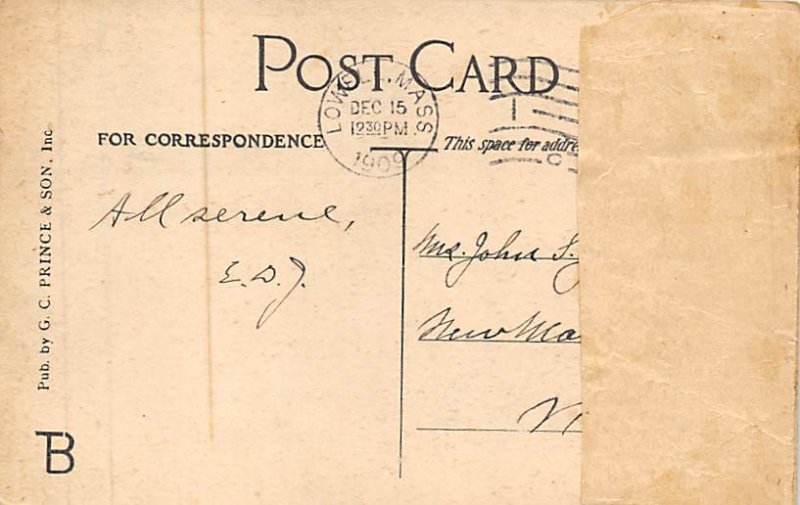 POST CARD
LOWELL, MASS
DEC 15
1230 PM
1909
FOR CORRESPONDENCE
This space for addre
All serene,
E. D. J.
Mrs. John S.
New Ma
V
Pub. by G. C. PRINCE & SON, Inc
TB